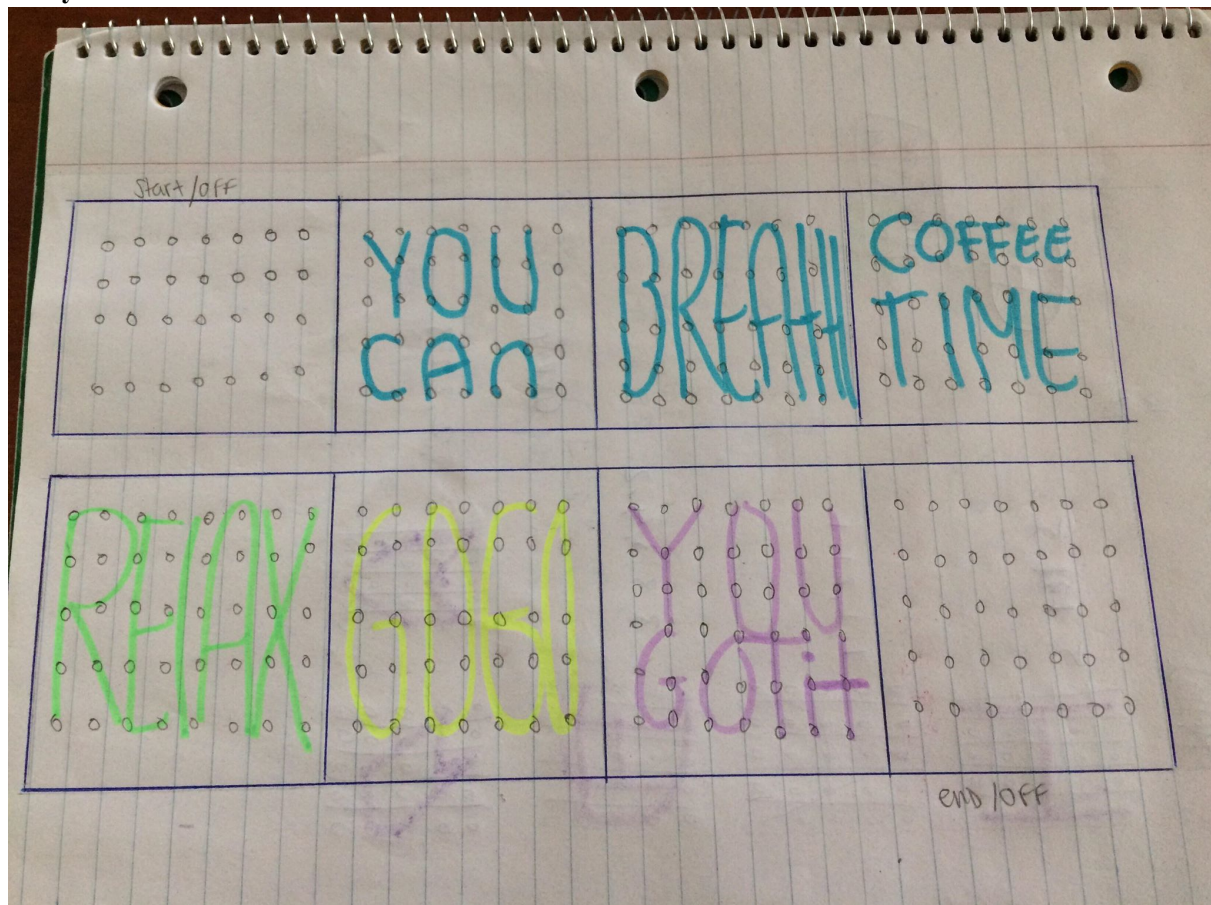 Start/OFF
YOU
CAn
BREATH
COFFEE
TIME
RELAX
GOGO
YOU
GOTit
end/OFF